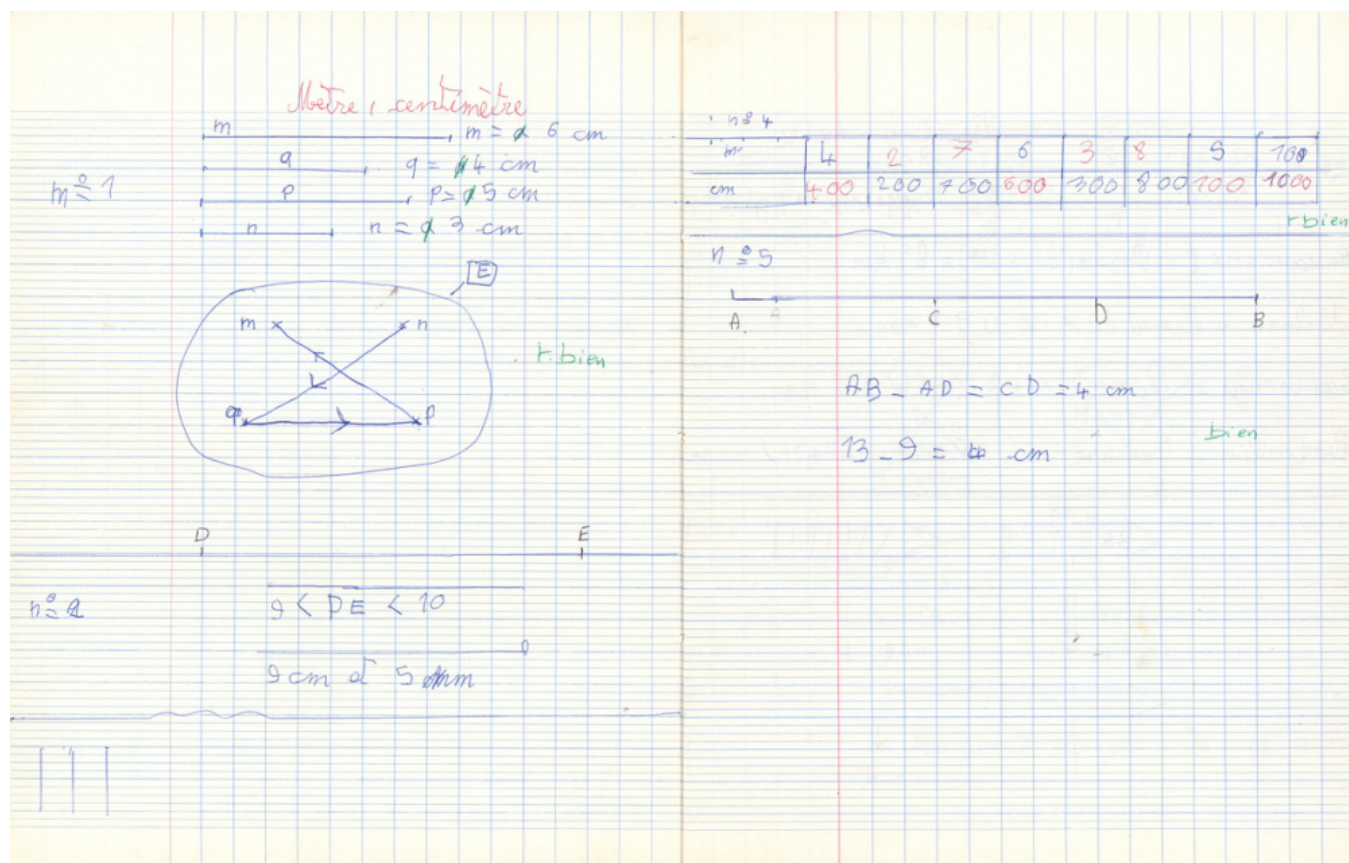 Mètre, centimètre
m
m = 6 cm
q
q = 4 cm
n° 1
p
p = 5 cm
n
n = 3 cm
E
m
n
t. bien
q
p
D
E
n° 2
9 < DE < 10
9 cm et 5 mm
n° 4
m 4 2 7 6 3 8 100
cm 400 200 700 600 300 800 100 1000
r bien
n° 5
A A C D B
AB - AD = CD = 4 cm
bien
13 - 9 = 4 cm